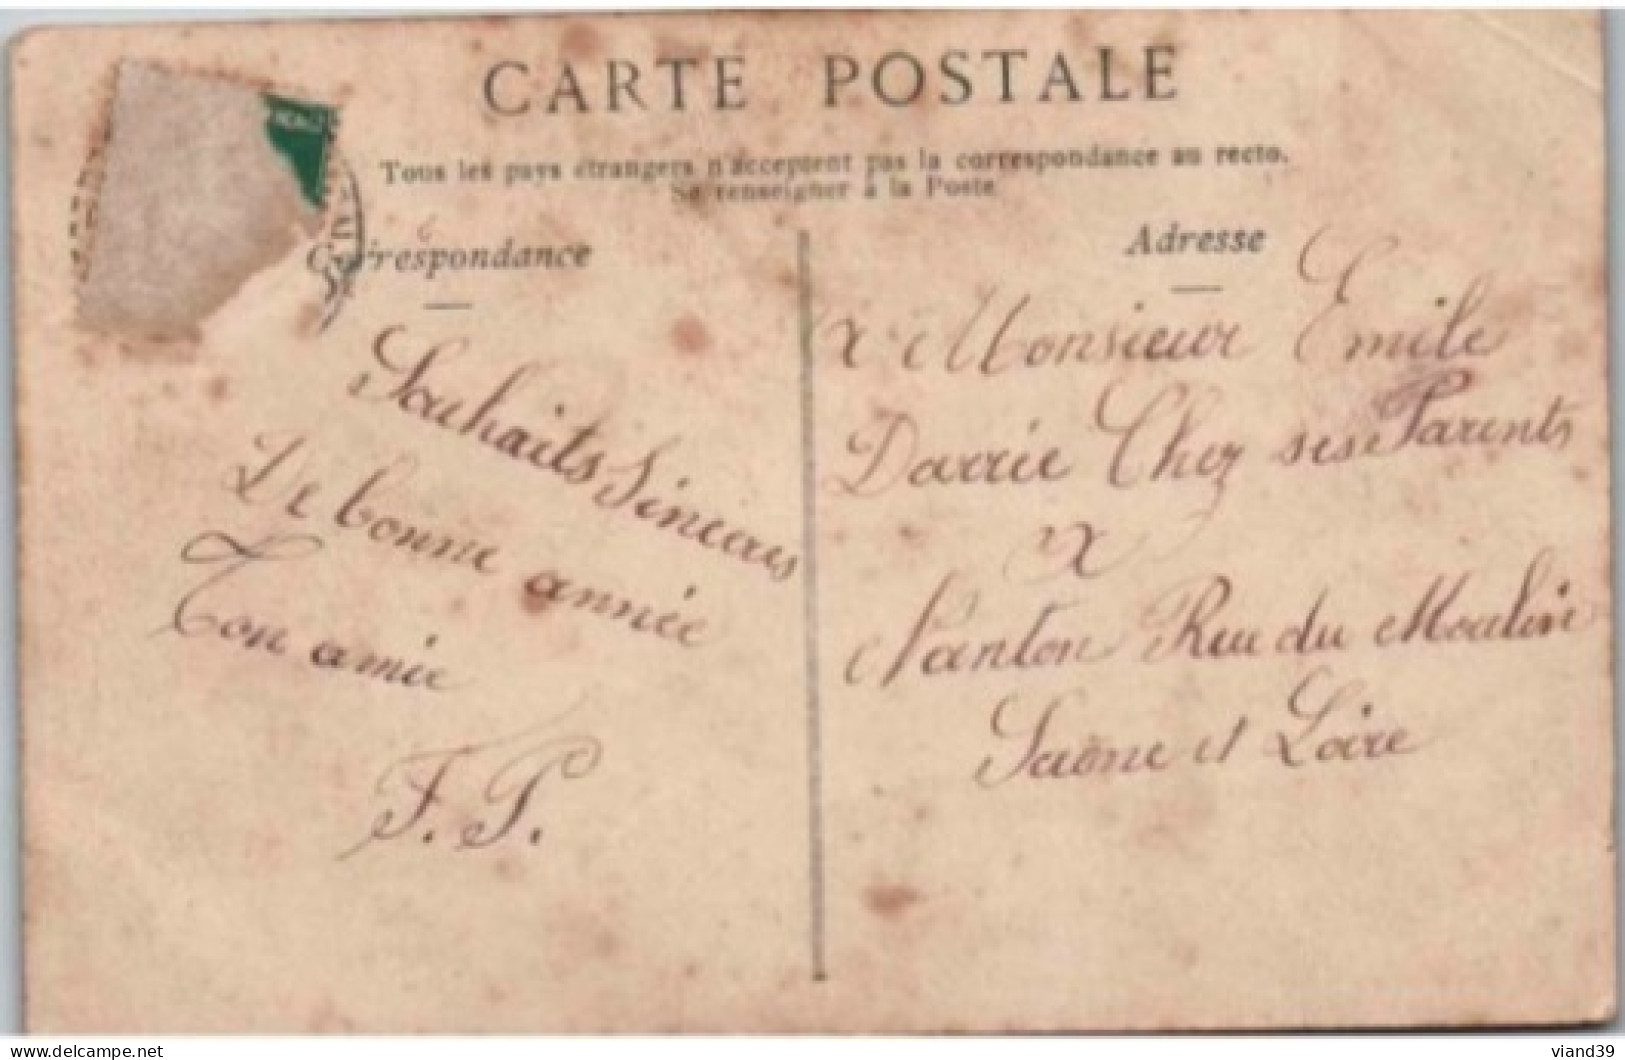 CARTE POSTALE
Tous les pays étrangers n'acceptent pas la correspondance au recto.
Se renseigner à la Poste
Correspondance
Souhaits Sincères
De bonne année
Ton amie
F. P.
Adresse
x Monsieur Emile
Darrée Chez ses Parents
x
Nanton Rue du Moulin
Saône et Loire
delcampe.net
viand39